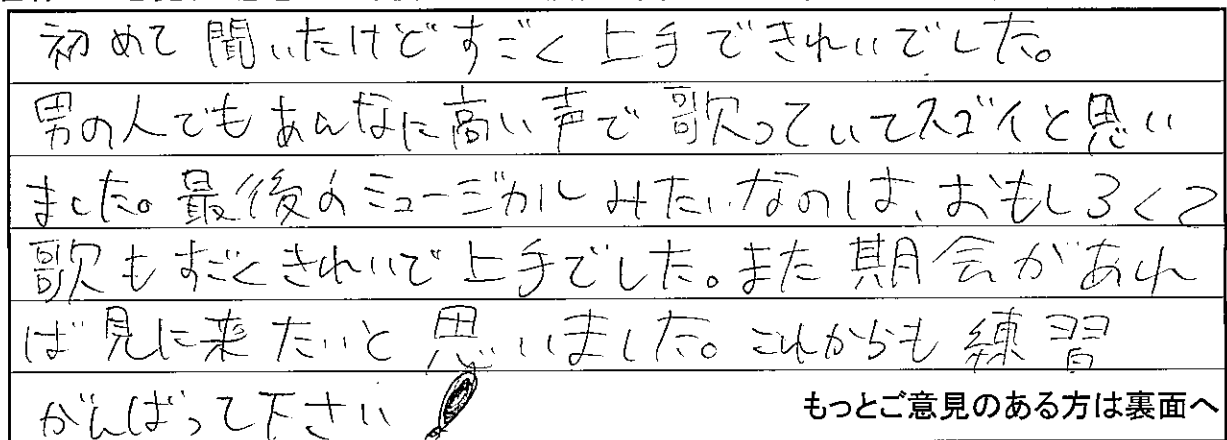 初めて聞いたけどすごく上手できれいでした。
男の人でもあんなに高い声で歌っていてスゴイと思い
ました。最後のミュージカルみたいなのは、おもしろくて
歌もすごくきれいで上手でした。また期会があれ
ば見に来たいと思いました。これからも練習
がんばって下さい
もっとご意見のある方は裏面へ